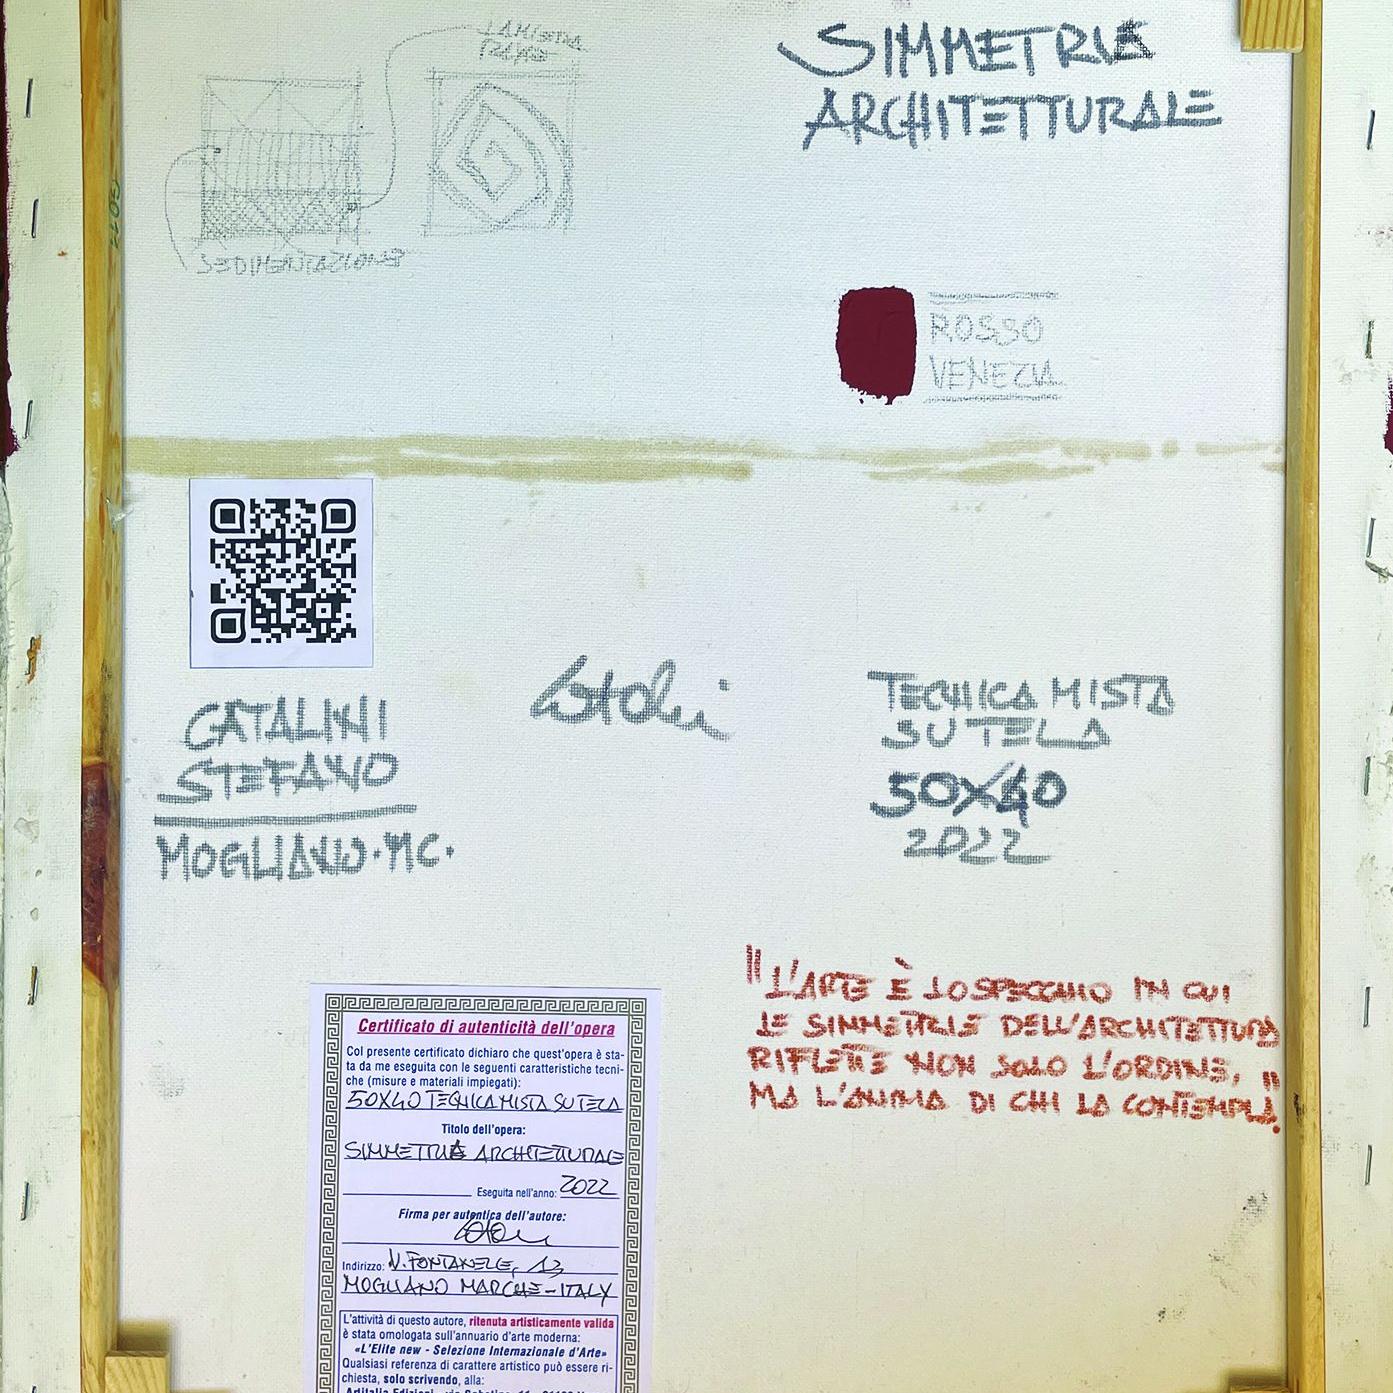 LAMIERA
SIMMETRIA
ARCHITETTURALE
SEDIMENTAZIONE
ROSSO
VENEZIA
CATALINI
STEFANO
MOGLIANO·MC.
TECNICA MISTA
SU TELA
50X40
2022
"L'ARTE È LO SPECCHIO IN CUI
LE SIMMETRIE DELL'ARCHITETTURA
RIFLETTE NON SOLO L'ORDINE,
MA L'ANIMA DI CHI LA CONTEMPLA."
Certificato di autenticità dell'opera
Col presente certificato dichiaro che quest'opera è sta-
ta da me eseguita con le seguenti caratteristiche tecni-
che (misure e materiali impiegati):
50X40 TECNICA MISTA SU TELA
Titolo dell'opera:
SIMMETRIA ARCHITETTURALE
Eseguita nell'anno: 2022
Firma per autentica dell'autore:
Indirizzo: V. FONTANELLE, 13
MOGLIANO MARCHE-ITALY
L'attività di questo autore, ritenuta artisticamente valida
è stata omologata sull'annuario d'arte moderna:
«L'Elite new - Selezione Internazionale d'Arte»
Qualsiasi referenza di carattere artistico può essere ri-
chiesta, solo scrivendo, alla: